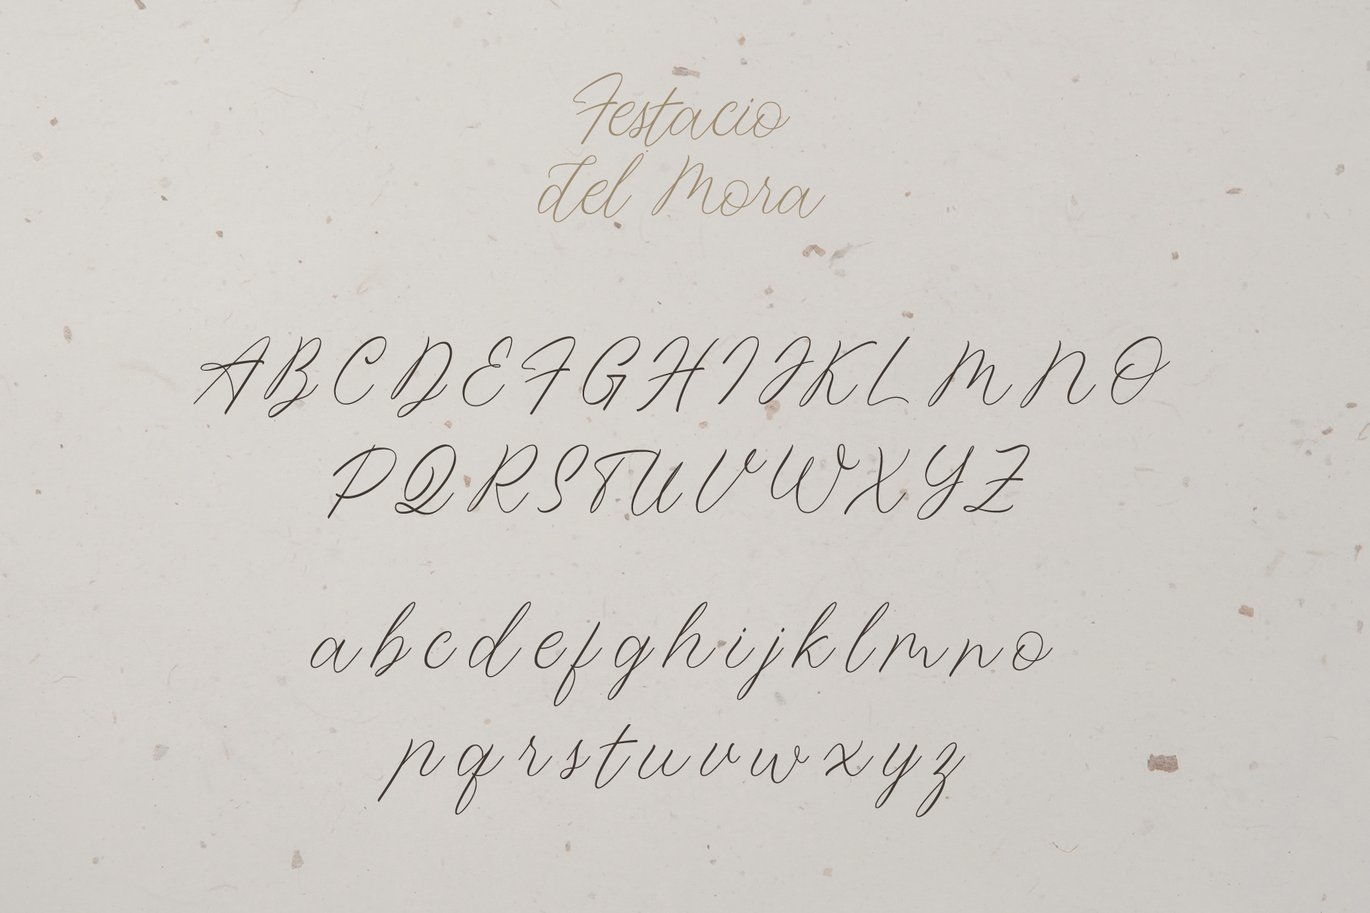 Festacio
del Mora
ABCDEFGHIJKLMNO
PQRSTUVWXYZ
abcdefghijklmno
pqrstuvwxyz